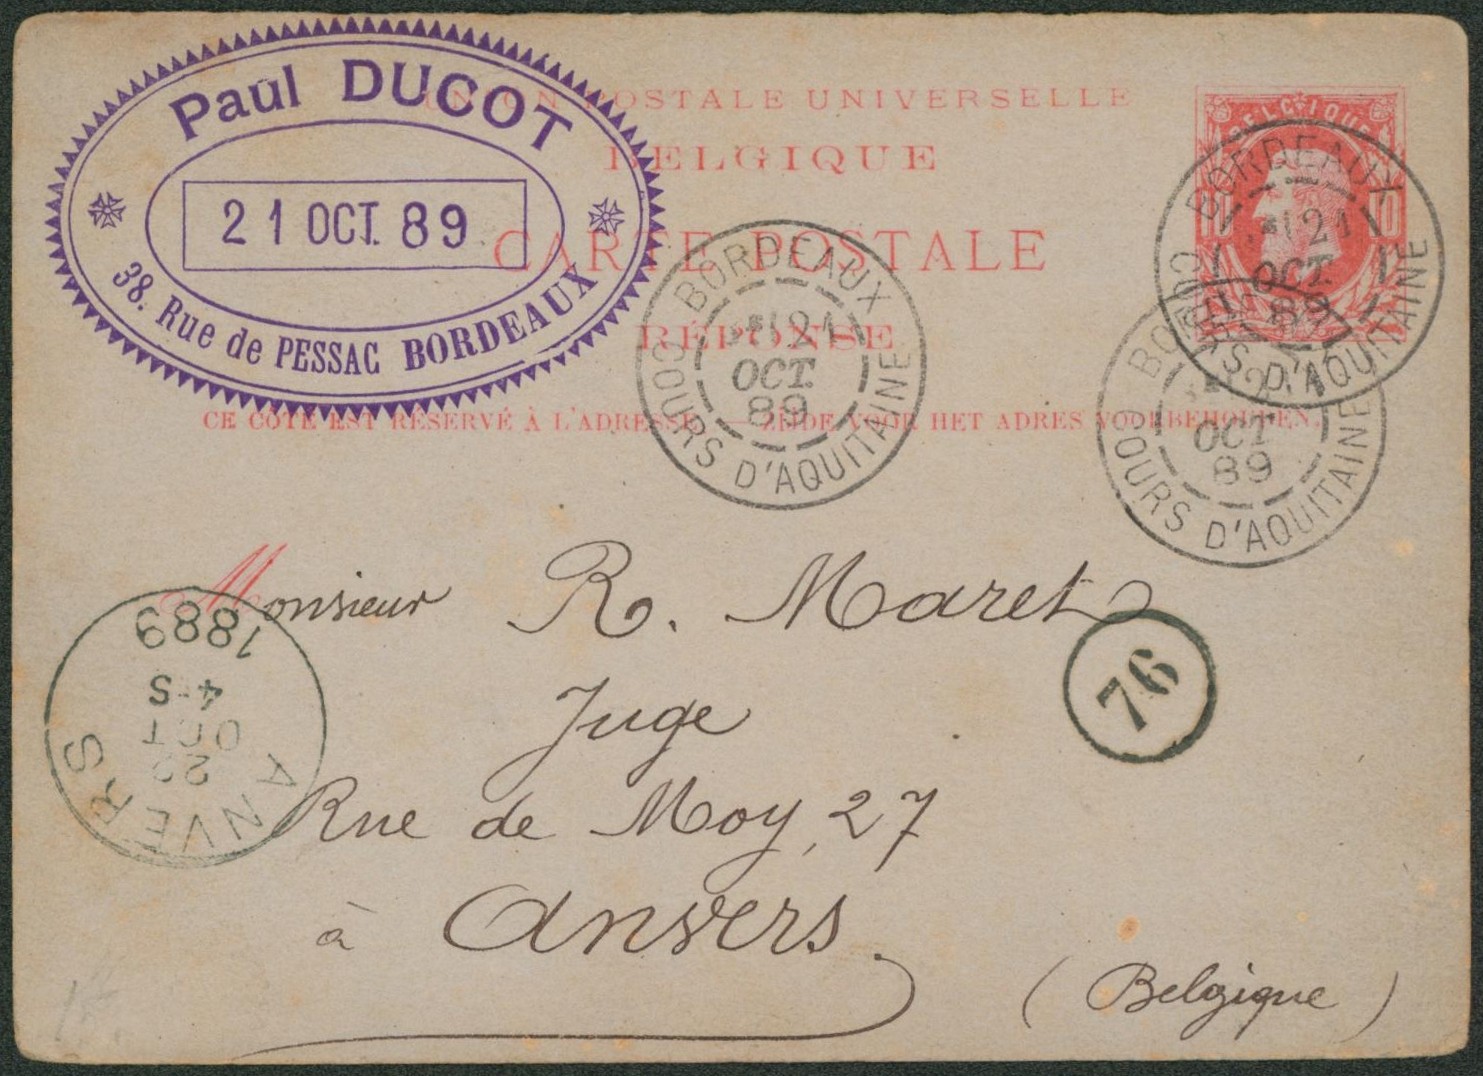 Paul DUCOT
21 OCT. 89
38. Rue de PESSAC BORDEAUX
UNION POSTALE UNIVERSELLE
BELGIQUE
CARTE POSTALE
RÉPONSE
CE CÔTÉ EST RÉSERVÉ À L'ADRESSE. — ZIJDE VOOR HET ADRES VOORBEHOUDEN.
BELGIQUE
10
BORDEAUX
21
OCT.
89
COURS D'AQUITAINE
BORDEAUX
21
OCT.
89
COURS D'AQUITAINE
OCT
89
COURS D'AQUITAINE
Monsieur R. Maret
Juge
Rue de Moy, 27
à Anvers.
(Belgique)
76
ANVERS
OCT
4-S
1889